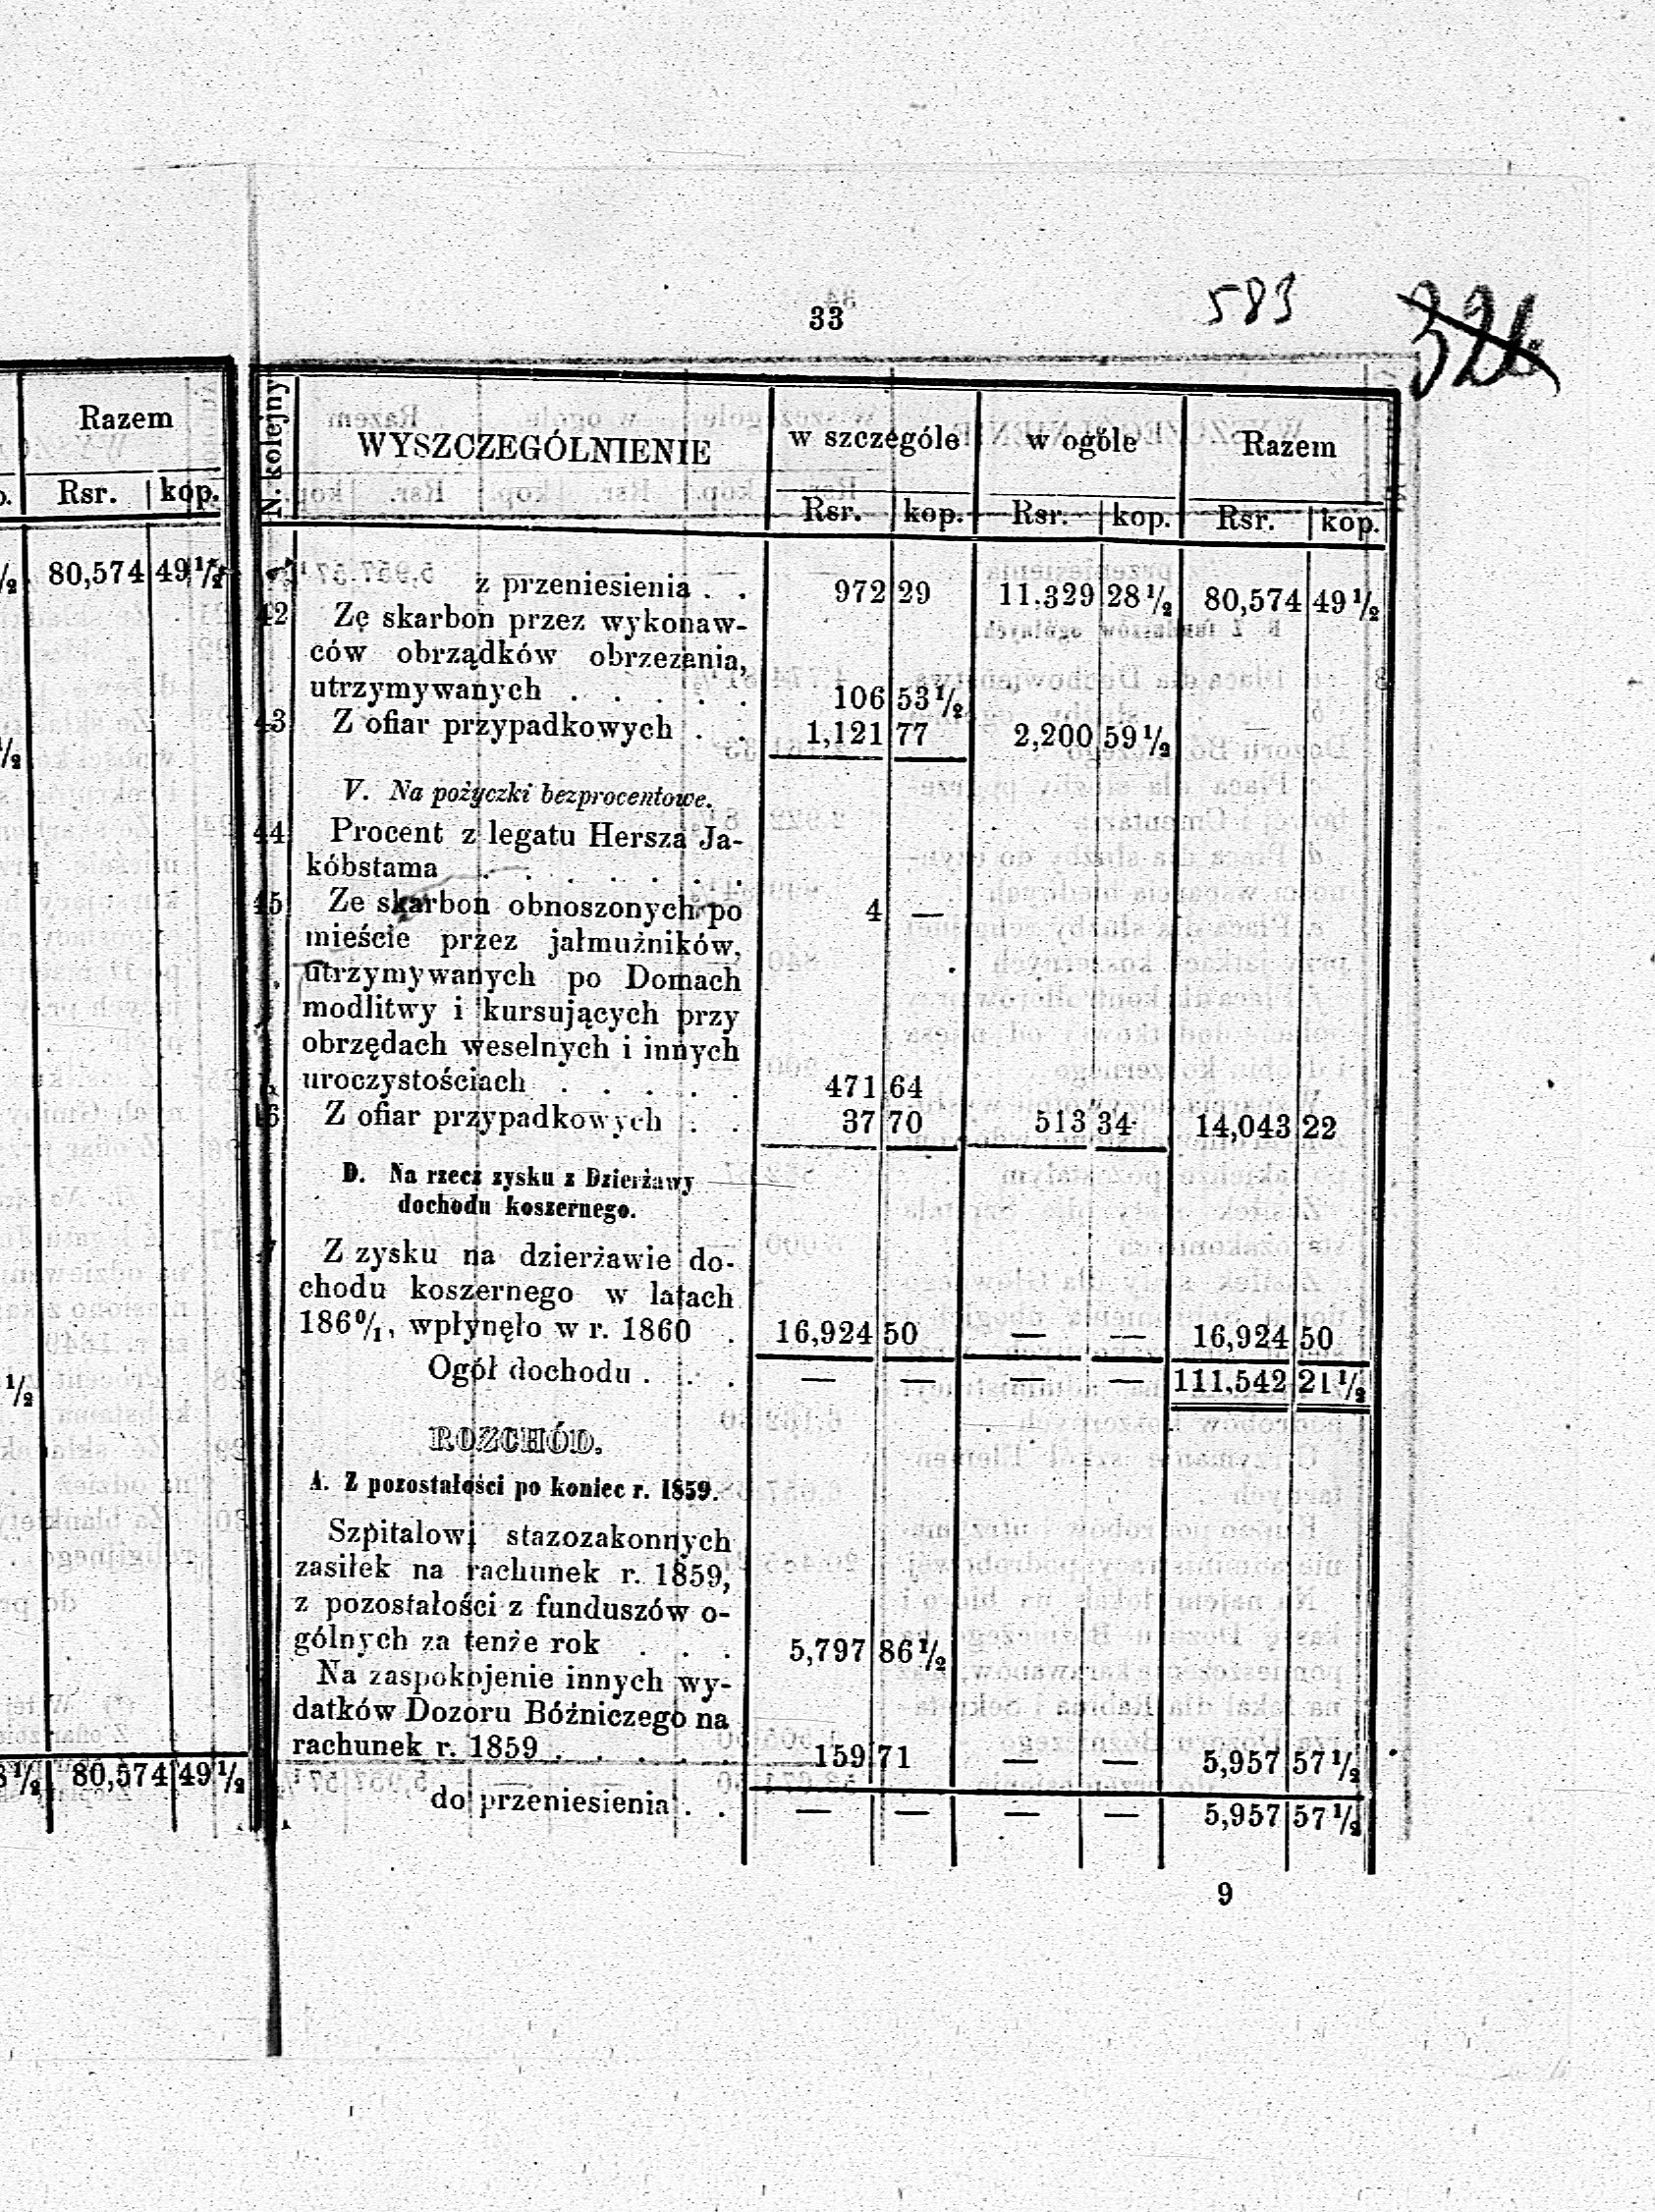 33
583
326
Razem
Rsr. kop.
80,574 49½
80,574 49½
N. kolejny WYSZCZEGÓLNIENIE w szczególe w ogóle Razem
Rsr. kop. Rsr. kop. Rsr. kop.
z przeniesienia . . 972 29 11.329 28½ 80,574 49½
42 Ze skarbon przez wykonaw-
ców obrządków obrzezania,
utrzymywanych . . . . . 106 53½
43 Z ofiar przypadkowych . . 1,121 77 2,200 59½ —
V. Na pożyczki bezprocentowe.
44 Procent z legatu Hersza Ja-
kóbstama . . . . . . . 4 —
45 Ze skarbon obnoszonych po
mieście przez jałmużników,
utrzymywanych po Domach
modlitwy i kursujących przy
obrzędach weselnych i innych
uroczystościach . . . . . 471 64
46 Z ofiar przypadkowych . . 37 70 513 34 14,043 22
D. Na rzecz zysku z Dzierżawy
dochodu koszernego.
Z zysku na dzierżawie do-
chodu koszernego w latach
186⁰/₁, wpłynęło w r. 1860 . 16,924 50 — — 16,924 50
Ogół dochodu . . . — — — — 111,542 21½
ROZCHÓD.
A. Z pozostałości po koniec r. 1859.
Szpitalowi stazozakonnych
zasiłek na rachunek r. 1859,
z pozostałości z funduszów o-
gólnych za tenże rok . . . 5,797 86½
Na zaspokojenie innych wy-
datków Dozoru Bóźniczego na
rachunek r. 1859 . . . . . 159 71 — — 5,957 57½
do przeniesienia . . — — — — 5,957 57½
9